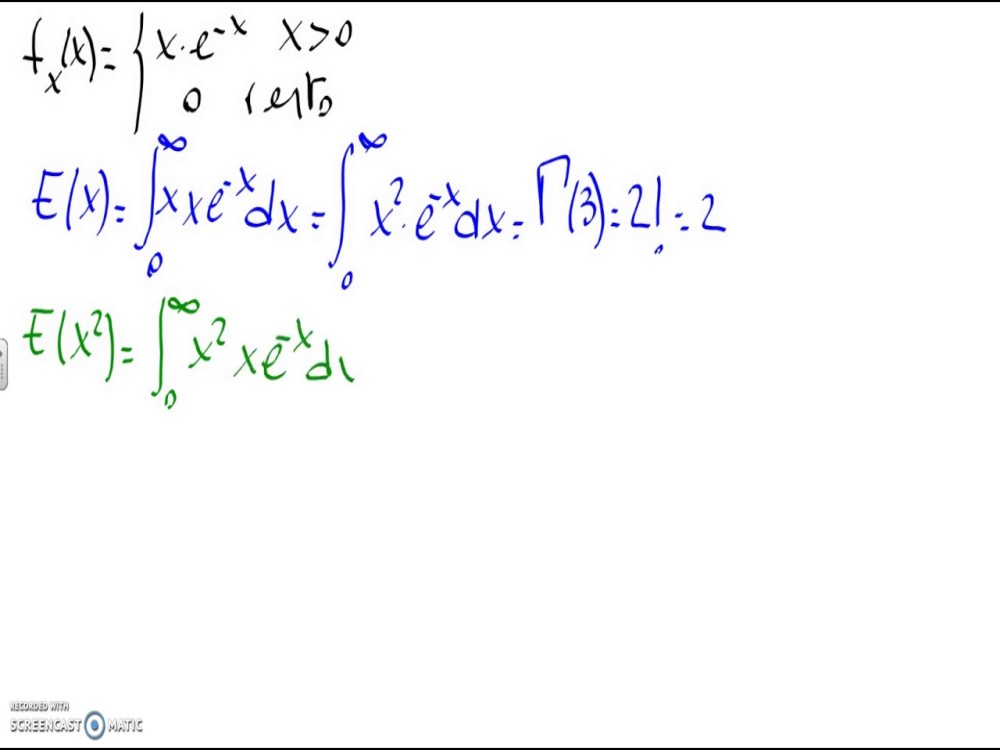 fₓ(x) = { x·e⁻ˣ x>0
0 resto
E(x) = ∫₀^∞ x x e⁻ˣ dx = ∫₀^∞ x²·e⁻ˣ dx = Γ(3) = 2! = 2
E(x²) = ∫₀^∞ x² x e⁻ˣ dx
RECORDED WITH
SCREENCAST MATIC